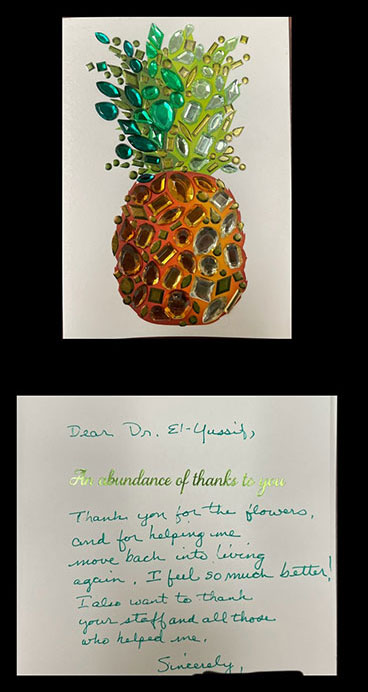 Dear Dr. El-Yussif,
An abundance of thanks to you
Thank you for the flowers,
and for helping me
move back into living
again. I feel so much better!
I also want to thank
your staff and all those
who helped me.
Sincerely,